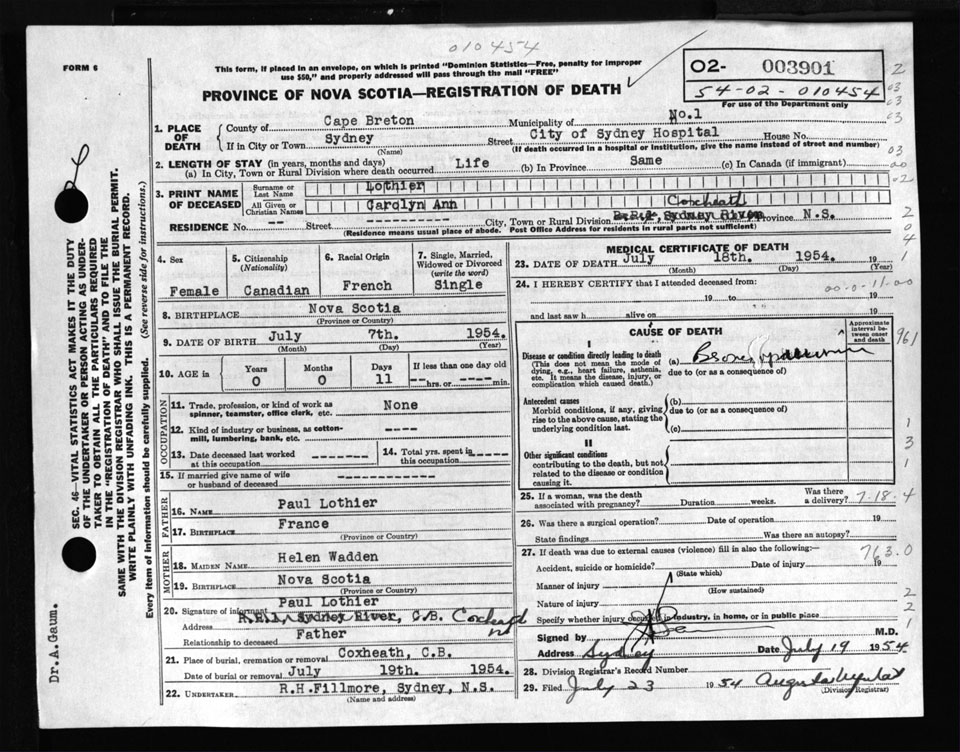 010454
FORM 6
This form, if placed in an envelope, on which is printed "Dominion Statistics—Free, penalty for improper
use $50," and properly addressed will pass through the mail "FREE"
PROVINCE OF NOVA SCOTIA—REGISTRATION OF DEATH
02- 003901
54-02-010454
For use of the Department only
1. PLACE OF DEATH
County of Cape Breton Municipality of No.1
If in City or Town Sydney Street City of Sydney Hospital House No.
(Name) (If death occurred in a hospital or institution, give the name instead of street and number)
2. LENGTH OF STAY (in years, months and days)
(a) In City, Town or Rural Division where death occurred Life (b) In Province Same (c) In Canada (if immigrant)
3. PRINT NAME OF DECEASED
Surname or Last Name Lothier
All Given or Christian Names Carolyn Ann
Coxheath
RESIDENCE No. -- Street -------- City, Town or Rural Division R.R.1, Sydney River Province N.S.
(Residence means usual place of abode. Post Office Address for residents in rural parts not sufficient)
4. Sex Female
5. Citizenship (Nationality) Canadian
6. Racial Origin French
7. Single, Married, Widowed or Divorced (write the word) Single
8. BIRTHPLACE Nova Scotia
(Province or Country)
9. DATE OF BIRTH July 7th. 1954.
(Month) (Day) (Year)
10. AGE in Years 0 Months 0 Days 11 If less than one day old
---- hrs. or ---- min.
OCCUPATION
11. Trade, profession, or kind of work as
spinner, teamster, office clerk, etc. None
12. Kind of industry or business, as cotton-
mill, lumbering, bank, etc. ----
13. Date deceased last worked
at this occupation -------
14. Total yrs. spent in
this occupation ------
15. If married give name of wife
or husband of deceased ------
FATHER
16. NAME Paul Lothier
17. BIRTHPLACE France
(Province or Country)
MOTHER
18. MAIDEN NAME Helen Wadden
19. BIRTHPLACE Nova Scotia
(Province or Country)
20. Signature of informant Paul Lothier
Address R.R.1, Sydney River, C.B. Coxheath
Relationship to deceased Father
21. Place of burial, cremation or removal Coxheath, C.B.
Date of burial or removal July 19th. 1954.
22. UNDERTAKER R.H.Fillmore, Sydney, N.S.
(Name and address)
MEDICAL CERTIFICATE OF DEATH
23. DATE OF DEATH July 18th. 1954. 19
(Month) (Day) (Year)
24. I HEREBY CERTIFY that I attended deceased from:
00-0-11-00
19 to 19
and last saw h alive on 19
CAUSE OF DEATH
Approximate interval between onset and death
I
Disease or condition directly leading to death
(This does not mean the mode of
dying, e.g., heart failure, asthenia,
etc. It means the disease, injury, or
complication which caused death.)
(a)
due to (or as a consequence of)
Antecedent causes
Morbid conditions, if any, giving
rise to the above cause, stating the
underlying condition last.
(b)
due to (or as a consequence of)
(c)
II
Other significant conditions
contributing to the death, but not
related to the disease or condition
causing it.
25. If a woman, was the death
associated with pregnancy? Duration weeks. Was there a delivery? 7-18-4
26. Was there a surgical operation? Date of operation 19
State findings Was there an autopsy?
27. If death was due to external causes (violence) fill in also the following:— 763.0
Accident, suicide or homicide? Date of injury 19
(State which)
Manner of injury
(How sustained)
Nature of injury
Specify whether injury occurred in industry, in home, or in public place
Signed by M.D.
Address Sydney Date July 19 1954
28. Division Registrar's Record Number
29. Filed July 23 1954
(Division Registrar)
SEC. 46—VITAL STATISTICS ACT MAKES IT THE DUTY
OF THE UNDERTAKER OR PERSON ACTING AS UNDER-
TAKER TO OBTAIN ALL THE PARTICULARS REQUIRED
IN THE "REGISTRATION OF DEATH" AND TO FILE THE
SAME WITH THE DIVISION REGISTRAR WHO SHALL ISSUE THE BURIAL PERMIT.
WRITE PLAINLY WITH UNFADING INK. THIS IS A PERMANENT RECORD.
Every item of information should be carefully supplied. (See reverse side for instructions.)
Dr.A.Gaum.